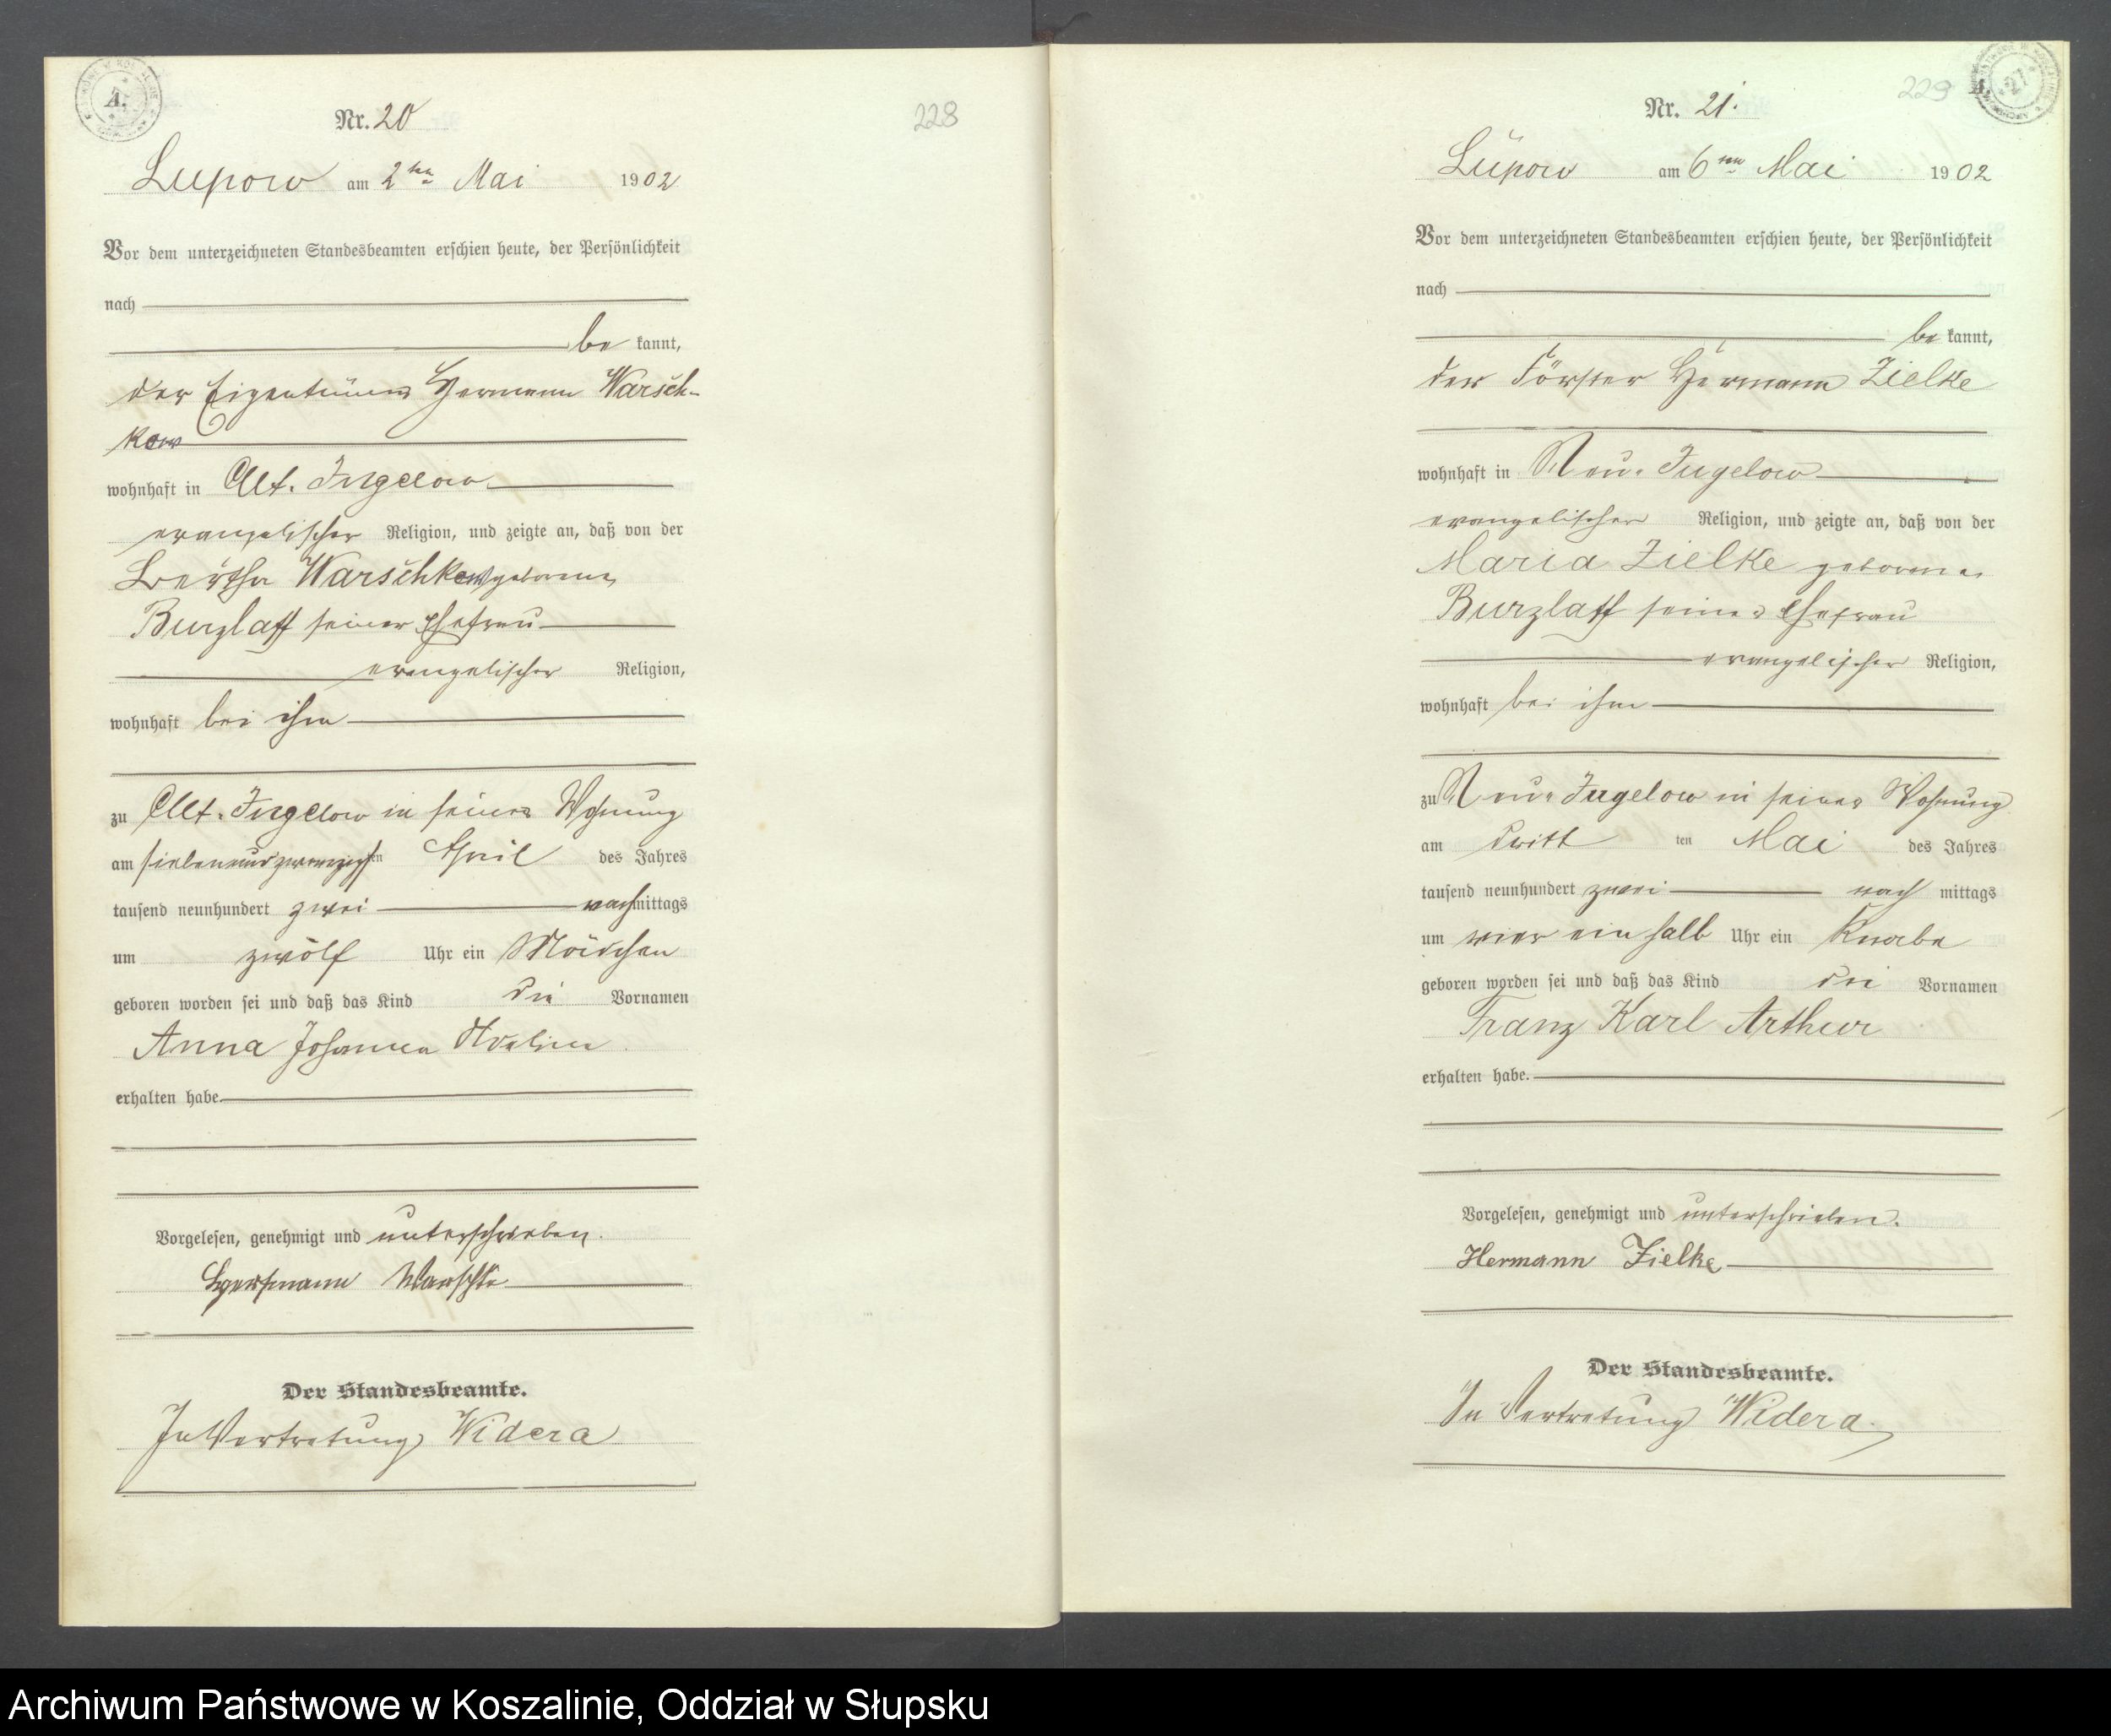 A.
Nr. 20
228
Lupow am 2ten Mai 1902
Vor dem unterzeichneten Standesbeamten erschien heute, der Persönlichkeit
nach
be kannt,
der Eigentümer Hermann Warsch-
kow
wohnhaft in Alt-Jugelow
evangelischer Religion, und zeigte an, daß von der
Bertha Warschkow geborene
Burzlaff seiner Ehefrau
evangelischer Religion,
wohnhaft bei ihm
zu Alt-Jugelow in seiner Wohnung
am siebenundzwanzigsten April des Jahres
tausend neunhundert zwei nachmittags
um zwölf Uhr ein Mädchen
geboren worden sei und daß das Kind die Vornamen
Anna Johanna
erhalten habe.
Vorgelesen, genehmigt und unterschrieben.
Hermann
Der Standesbeamte.
In Vertretung Widera
Nr. 21.
229
A.
Lüpow am 6ten Mai 1902
Vor dem unterzeichneten Standesbeamten erschien heute, der Persönlichkeit
nach
be kannt,
der Förster Hermann Zielke
wohnhaft in Neu-Jugelow
evangelischer Religion, und zeigte an, daß von der
Maria Zielke geborene
Burzlaff seiner Ehefrau
evangelischer Religion,
wohnhaft bei ihm
zu Neu-Jugelow in seiner Wohnung
am dritt ten Mai des Jahres
tausend neunhundert zwei nach mittags
um vier ein halb Uhr ein Knabe
geboren worden sei und daß das Kind die Vornamen
Franz Karl Arthur
erhalten habe.
Vorgelesen, genehmigt und unterschrieben.
Hermann Zielke
Der Standesbeamte.
In Vertretung Widera.
Archiwum Państwowe w Koszalinie, Oddział w Słupsku